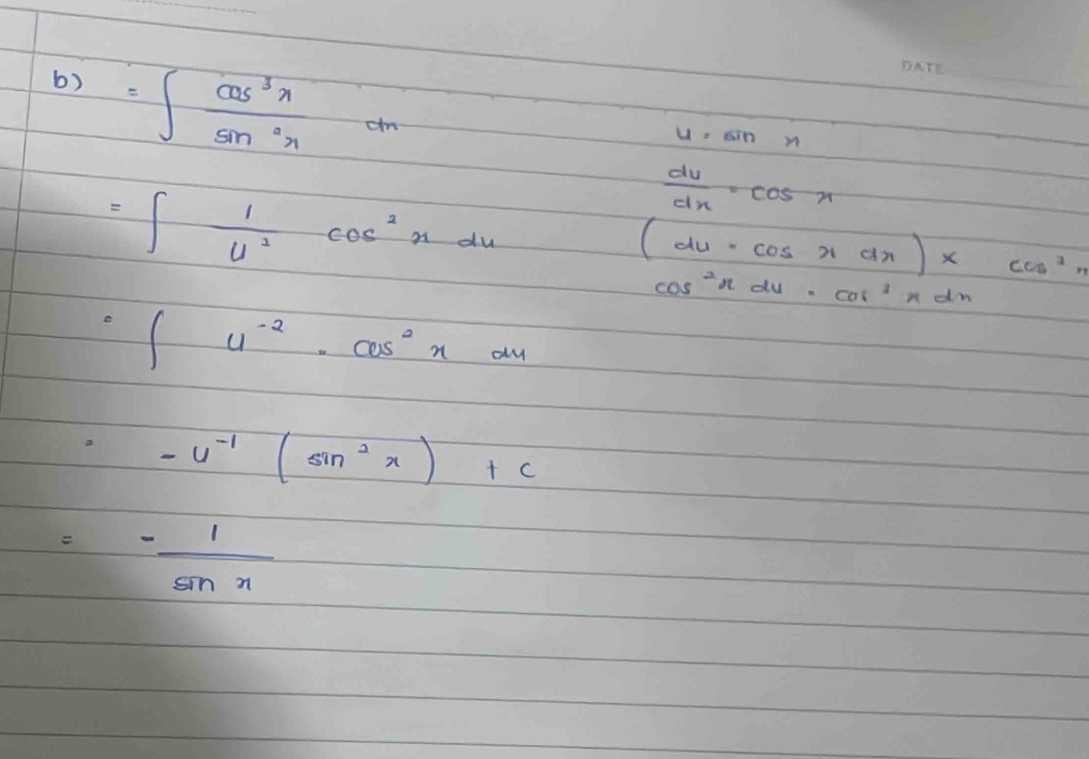 DATE
b) = ∫ cos³x / sin²x dx
u = sin x
du/dx = cos x
= ∫ 1/u² cos²x du
(du = cos x dx) × cos²x
cos²x du = cos³x dx
= ∫ u⁻² . cos²x du
= -u⁻¹ (sin²x) + c
= - 1 / sin x